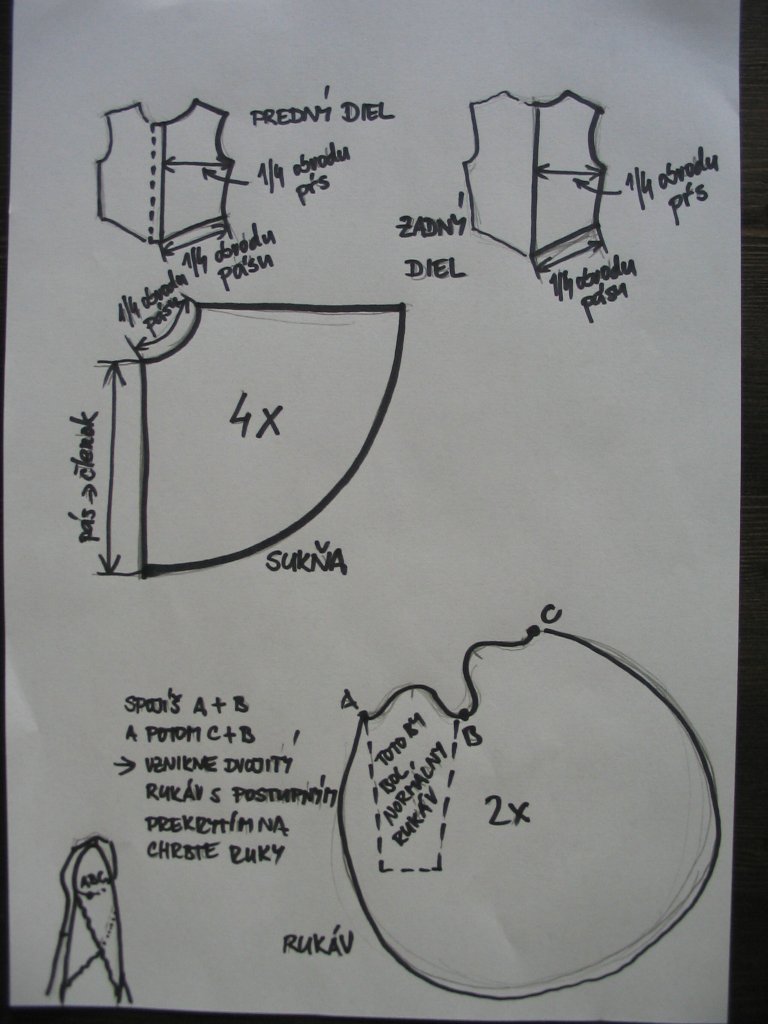 PREDNÝ DIEL
1/4 obvodu
pŕs
1/4 obvodu
pásu
ZADNÝ
DIEL
1/4 obvodu
pŕs
1/4 obvodu
pásu
1/4 obvodu
pásu
4x
pás → členok
SUKŇA
C
A
B
TOTO BY
BOL
NORMÁLNY
RUKÁV
2x
SPOJÍŠ A + B
A POTOM C + B
→ VZNIKNE DVOJITÝ
RUKÁV S POSTUPNÝM
PREKRYTÍM NA
CHRBTE RUKY
ABC
RUKÁV